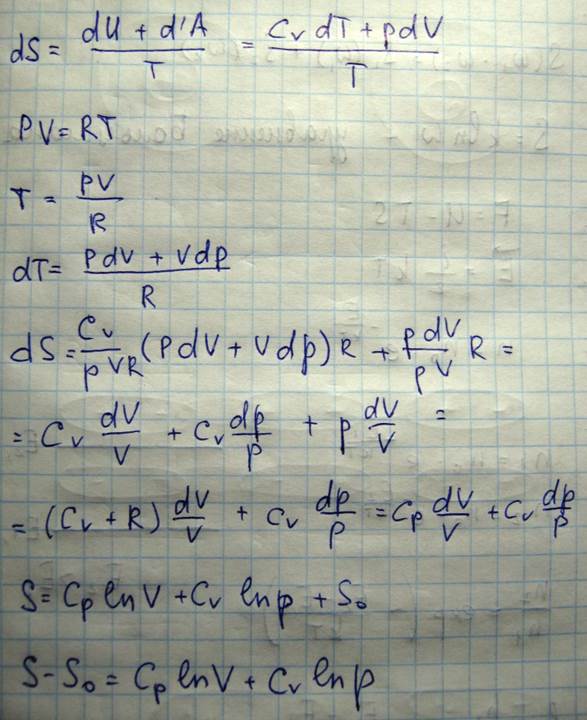 dS = (dU + d'A)/T = (C_v dT + pdV)/T
PV = RT
T = PV/R
dT = (PdV + Vdp)/R
dS = C_v/(pVR) (PdV + Vdp) R + pdV/(pV) R =
= C_v dV/V + C_v dp/p + p dV/V =
= (C_v + R) dV/V + C_v dp/p = C_p dV/V + C_v dp/p
S = C_p ln V + C_v ln p + S₀
S - S₀ = C_p ln V + C_v ln p